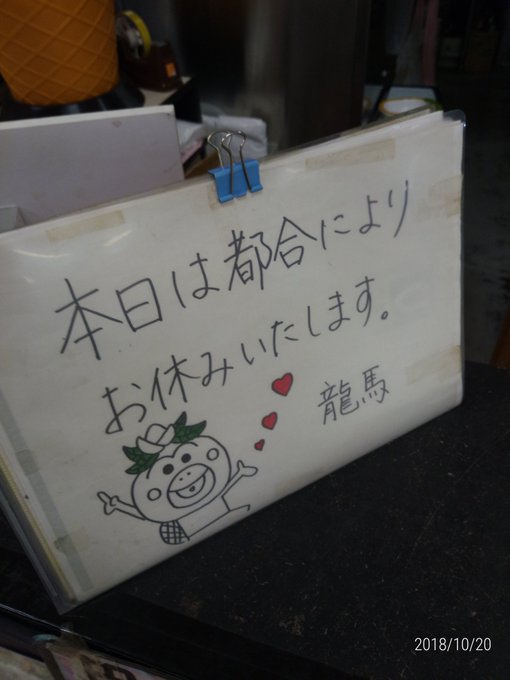 本日は都合により
お休みいたします。
龍馬
2018/10/20